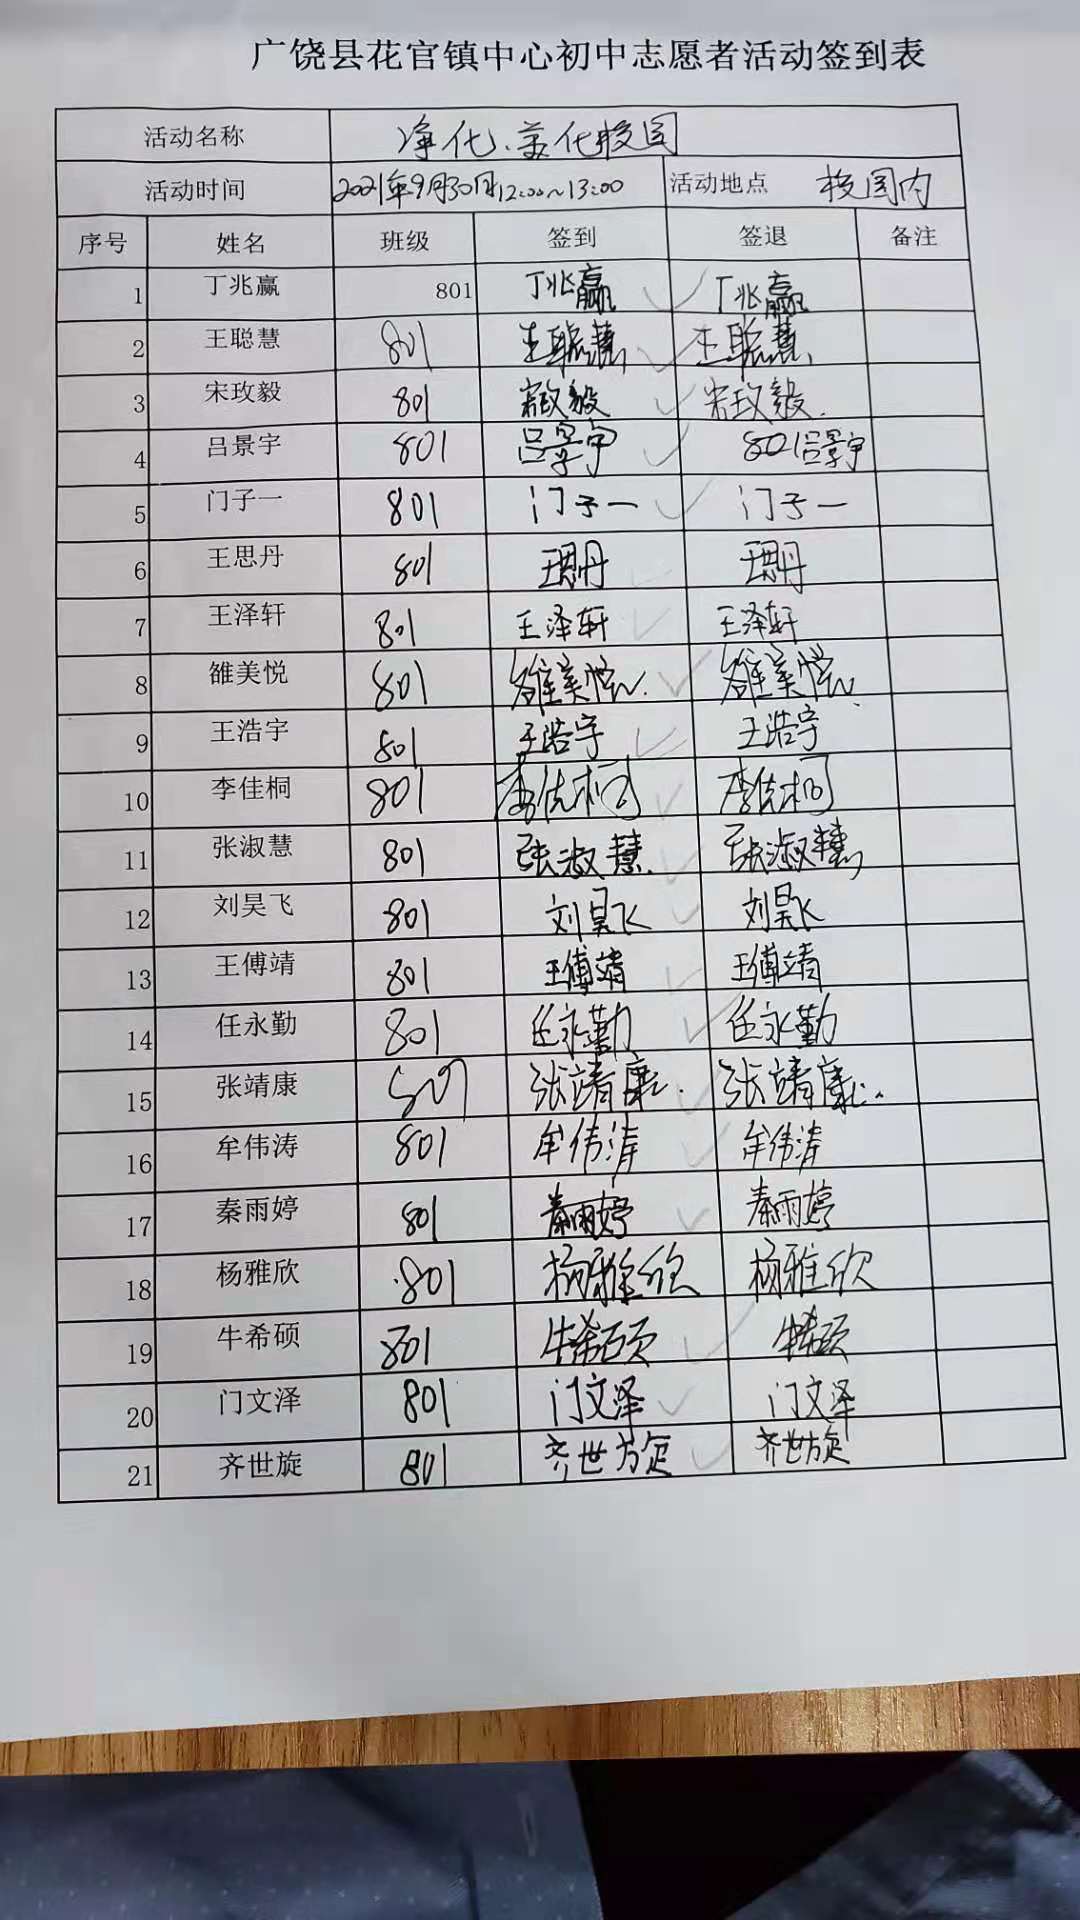 广饶县花官镇中心初中志愿者活动签到表
活动名称 净化、美化校园
活动时间 2021年9月30日12:00~13:00 活动地点 校园内
序号 姓名 班级 签到 签退 备注
1 丁兆赢 801 丁兆赢 丁兆赢
2 王聪慧 801 王聪慧 王聪慧
3 宋玫毅 801 宋玫毅 宋玫毅
4 吕景宇 801 吕景宇 801吕景宇
5 门子一 801 门子一 门子一
6 王思丹 801 王思丹 王思丹
7 王泽轩 801 王泽轩 王泽轩
8 雒美悦 801 雒美悦 雒美悦
9 王浩宇 801 王浩宇 王浩宇
10 李佳桐 801 李佳桐 李佳桐
11 张淑慧 801 张淑慧 张淑慧
12 刘昊飞 801 刘昊飞 刘昊飞
13 王傅靖 801 王傅靖 王傅靖
14 任永勤 801 任永勤 任永勤
15 张靖康 801 张靖康 张靖康
16 牟伟涛 801 牟伟涛 牟伟涛
17 秦雨婷 801 秦雨婷 秦雨婷
18 杨雅欣 801 杨雅欣 杨雅欣
19 牛希硕 801 牛希硕 牛希硕
20 门文泽 801 门文泽 门文泽
21 齐世旋 801 齐世旋 齐世旋